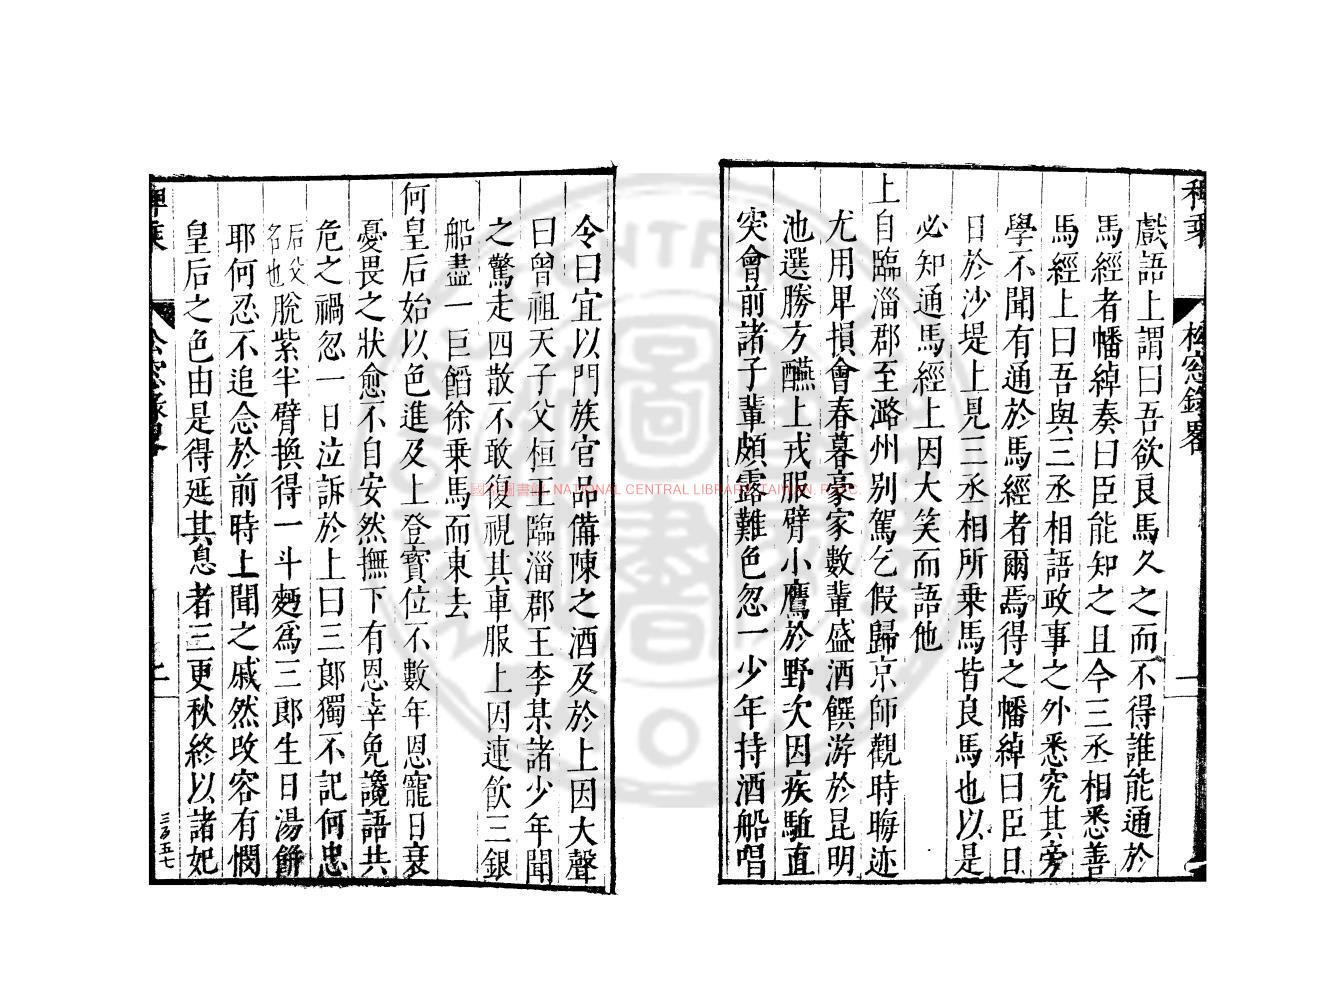 稗乗
松窓錄畧
二
戯語上謂曰吾欲良馬久之而不得誰能通於
馬經者幡綽奏曰臣能知之且今三丞相悉善
馬經上曰吾與三丞相語政事之外悉究其旁
學不聞有通於馬經者爾焉得之幡綽曰臣日
日於沙堤上見三丞相所乗馬皆良馬也以是
必知通馬經上因大笑而語他
上自臨淄郡至潞州别駕乞假歸京師觀時晦迹
尤用卑損會春暮豪家數輩盛酒饌游於昆明
池選勝方醼上戎服臂小鷹於野次因疾駈直
突會前諸子輩頗露難色忽一少年持酒船唱
令曰宜以門族官品備陳之酒及於上因大聲
曰曾祖天子父桓王臨淄郡王李某諸少年聞
之驚走四散不敢復視其車服上因連飲三銀
船盡一巨餡徐乗馬而東去
何皇后始以色進及上登寳位不數年恩寵日衰
憂畏之狀愈不自安然撫下有恩幸免讒語共
危之禍忽一日泣訴於上曰三郎獨不記何忠
后父
名也
脫紫半臂換得一斗麪爲三郎生日湯餅
耶何忍不追念於前時上聞之戚然改容有憫
皇后之色由是得延其息者三更秋終以諸妃
三百五七
國家圖書館 NATIONAL CENTRAL LIBRARY, TAIWAN, R.O.C.